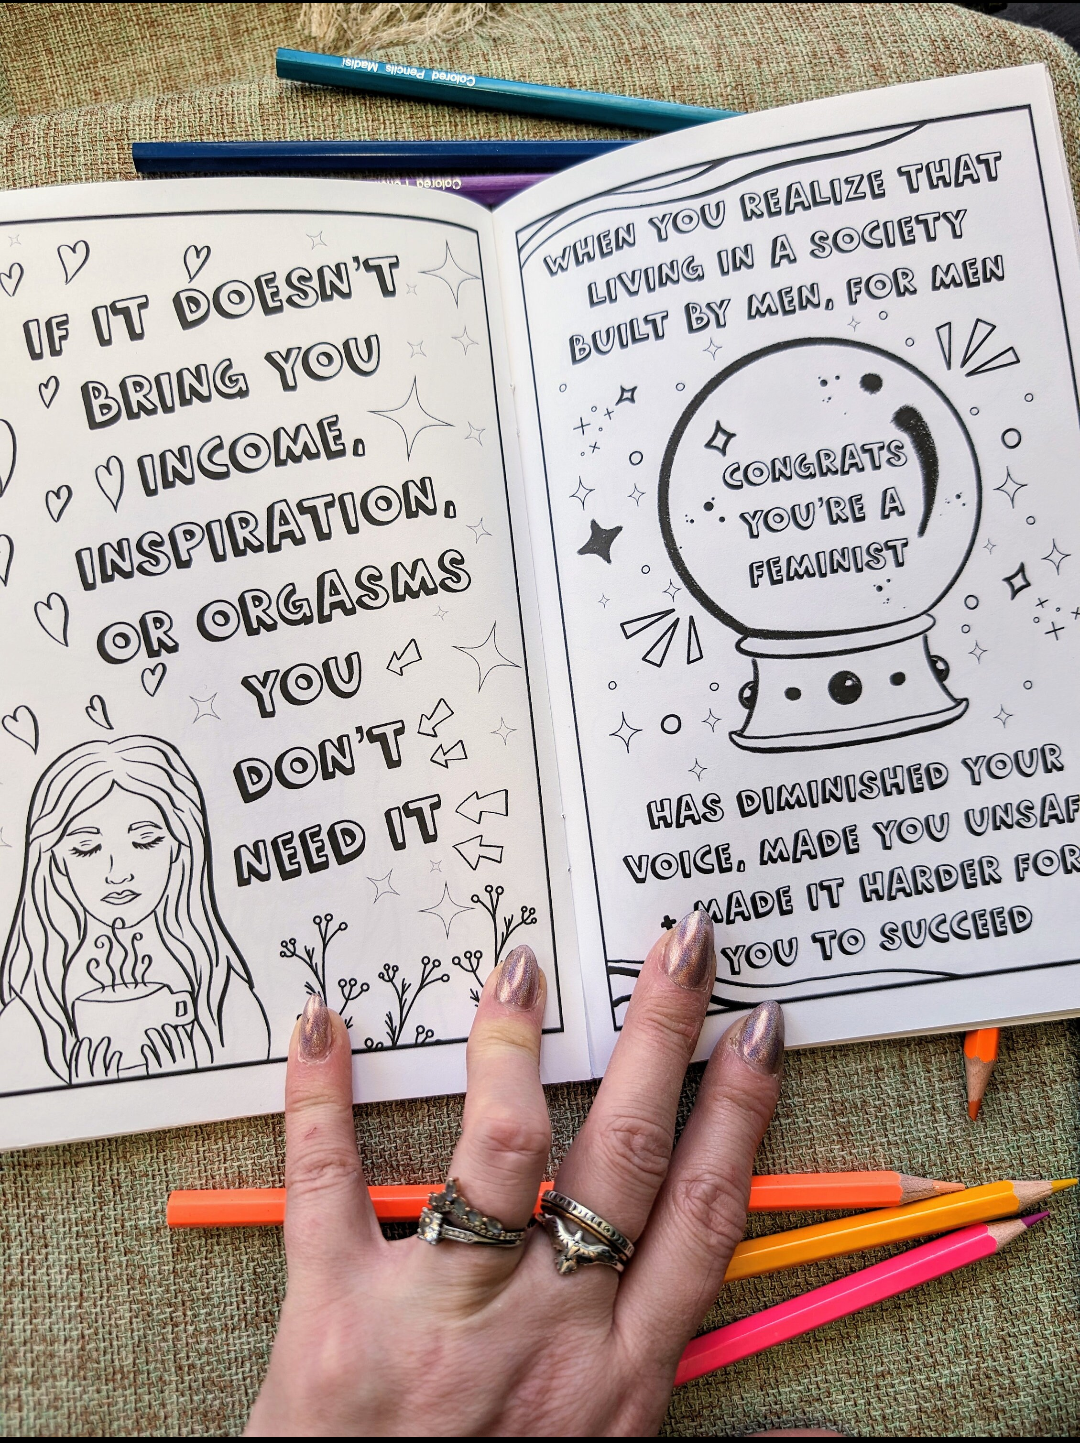 Colored Pencils Madisi
Colored Pen
IF IT DOESN'T
BRING YOU
INCOME,
INSPIRATION,
OR ORGASMS
YOU
DON'T
NEED IT
WHEN YOU REALIZE THAT
LIVING IN A SOCIETY
BUILT BY MEN, FOR MEN
CONGRATS
YOU'RE A
FEMINIST
HAS DIMINISHED YOUR
VOICE, MADE YOU UNSAF
+ MADE IT HARDER FOR
YOU TO SUCCEED